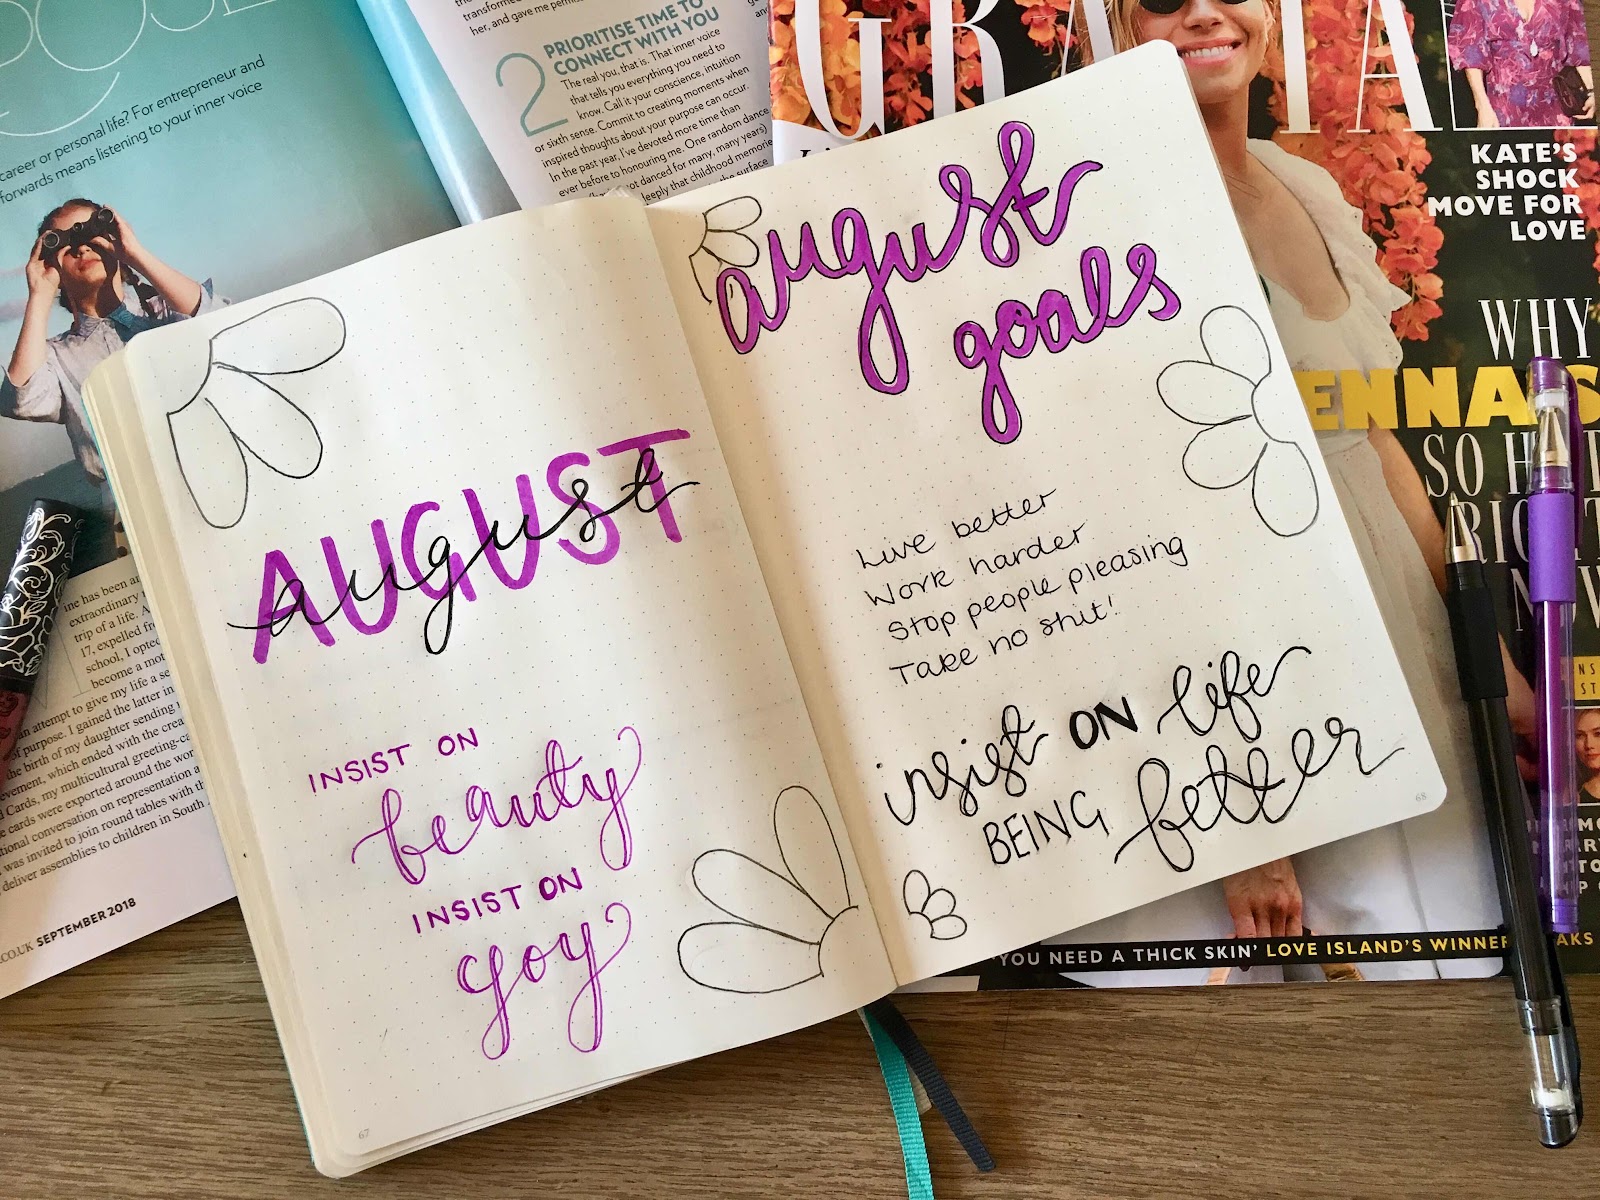 career or personal life? For entrepreneur and
forwards means listening to your inner voice
and gave me
2 PRIORITISE TIME TO
CONNECT WITH YOU
The real you, that is. That inner voice
that tells you everything you need to
know. Call it your conscience, intuition
or sixth sense. Commit to creating moments when
inspired thoughts about your purpose can occur.
In the past year, I've devoted more time than
ever before to honouring me. One random dance
not danced for many, many years)
deeply that childhood memorie
the surface
GRAZIA
KATE'S
SHOCK
MOVE FOR
LOVE
WHY
ENNA'S
SO
RIGHT
NOW
'YOU NEED A THICK SKIN' LOVE ISLAND'S WINNER
ine has been an
extraordinary
trip of a life. A
17, expelled fr
school, I opted
become a mot
an attempt to give my life a se
of purpose. I gained the latter in
the birth of my daughter sending
evement, which ended with the crea
d Cards, my multicultural greeting-ca
e cards were exported around the wor
tional conversation on representation a
was invited to join round tables with th
deliver assemblies to children in South
.CO.UK SEPTEMBER 2018
AUGUST
august
INSIST ON
beauty
INSIST ON
joy
67
august
goals
Live better
Work harder
Stop people pleasing
Take no shit!
insist ON life
BEING better
68